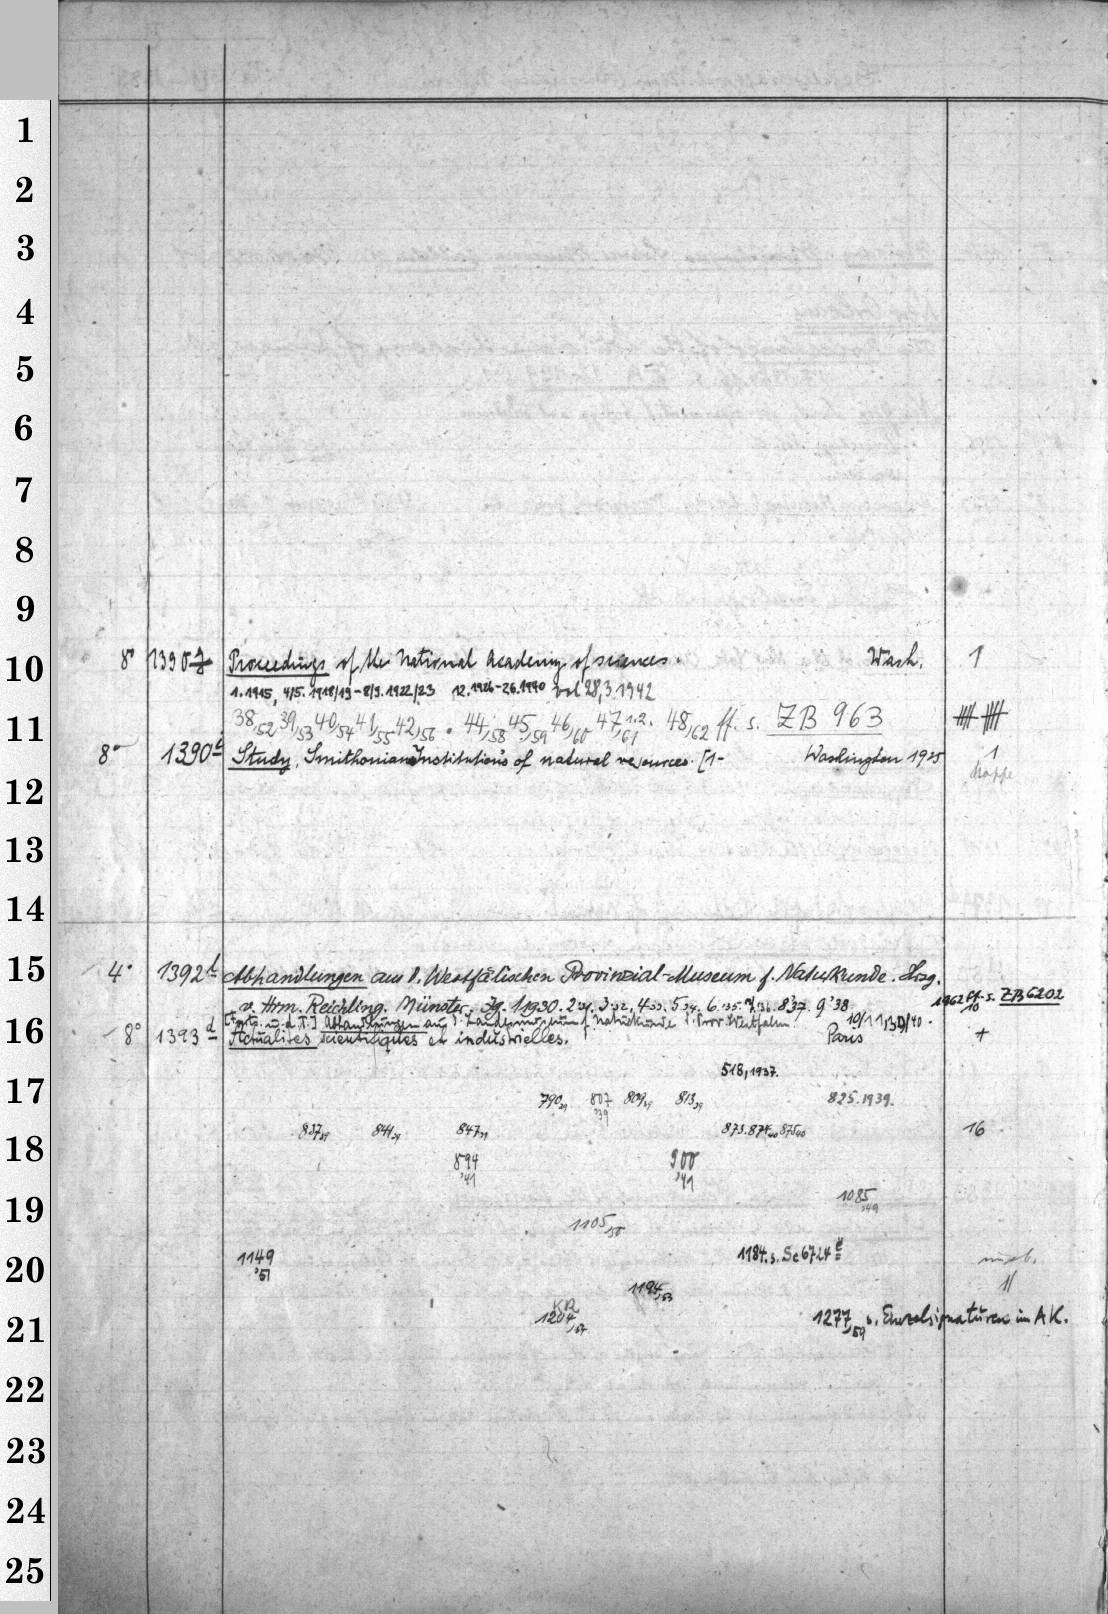 1
2
3
4
5
6
7
8
9
10 8° 1390 Proceedings of the National Academy of sciences. Wash. 1
1.1915, 4/5. 1918/19-8/9. 1922/23 12.1926-26.1940 vol 28,3.1942
11 38,52 39,53 40,54 41,55 42,56 . 44,58 45,59 46,60 47,1.2.61 48,62 ff. s. ZB 963
8° 1390 Study, Smithonian Institutions of natural resources. [1- Washington 1925 1
12 Mappe
13
14
15 4° 1392 Abhandlungen aus d. Westfälischen Provinzial-Museum f. Naturkunde. Hrsg.
v. Hrm. Reichling. Münster. Jg. 1.1930. 2'31. 3'32. 4'33. 5'34. 6.'35. 7'36. 8'37. 9'38. 1962 ff. s. ZB 6202
Abhandlungen aus d. Landesmuseum f. Naturkunde d. Prov. Westfalen 10/11 1939/40.
16 8° 1393 d Actualités scientifiques et industrielles. Paris +
518, 1937.
17 790,39 807,39 809,39 813,39 825.1939.
837,39 841,39 847,39 873. 874,40 875,40 16
18 894,'41 900,'41
1085,49
19 1105,50
1149,'51 1184. s. Sc 6724
20 1194,53 11
1204,54
21 1277,59 s. Einzelsignaturen im AK.
22
23
24
25